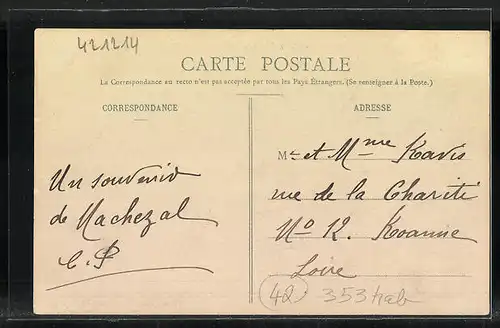 421214
CARTE POSTALE
La Correspondance au recto n'est pas acceptée par tous les Pays Étrangers. (Se renseigner à la Poste.)
CORRESPONDANCE
Un souvenir
de Machezal
C.P
ADRESSE
Mr et Mme Ravis
rue de la Charité
No 12. Roanne
Loire
42 353